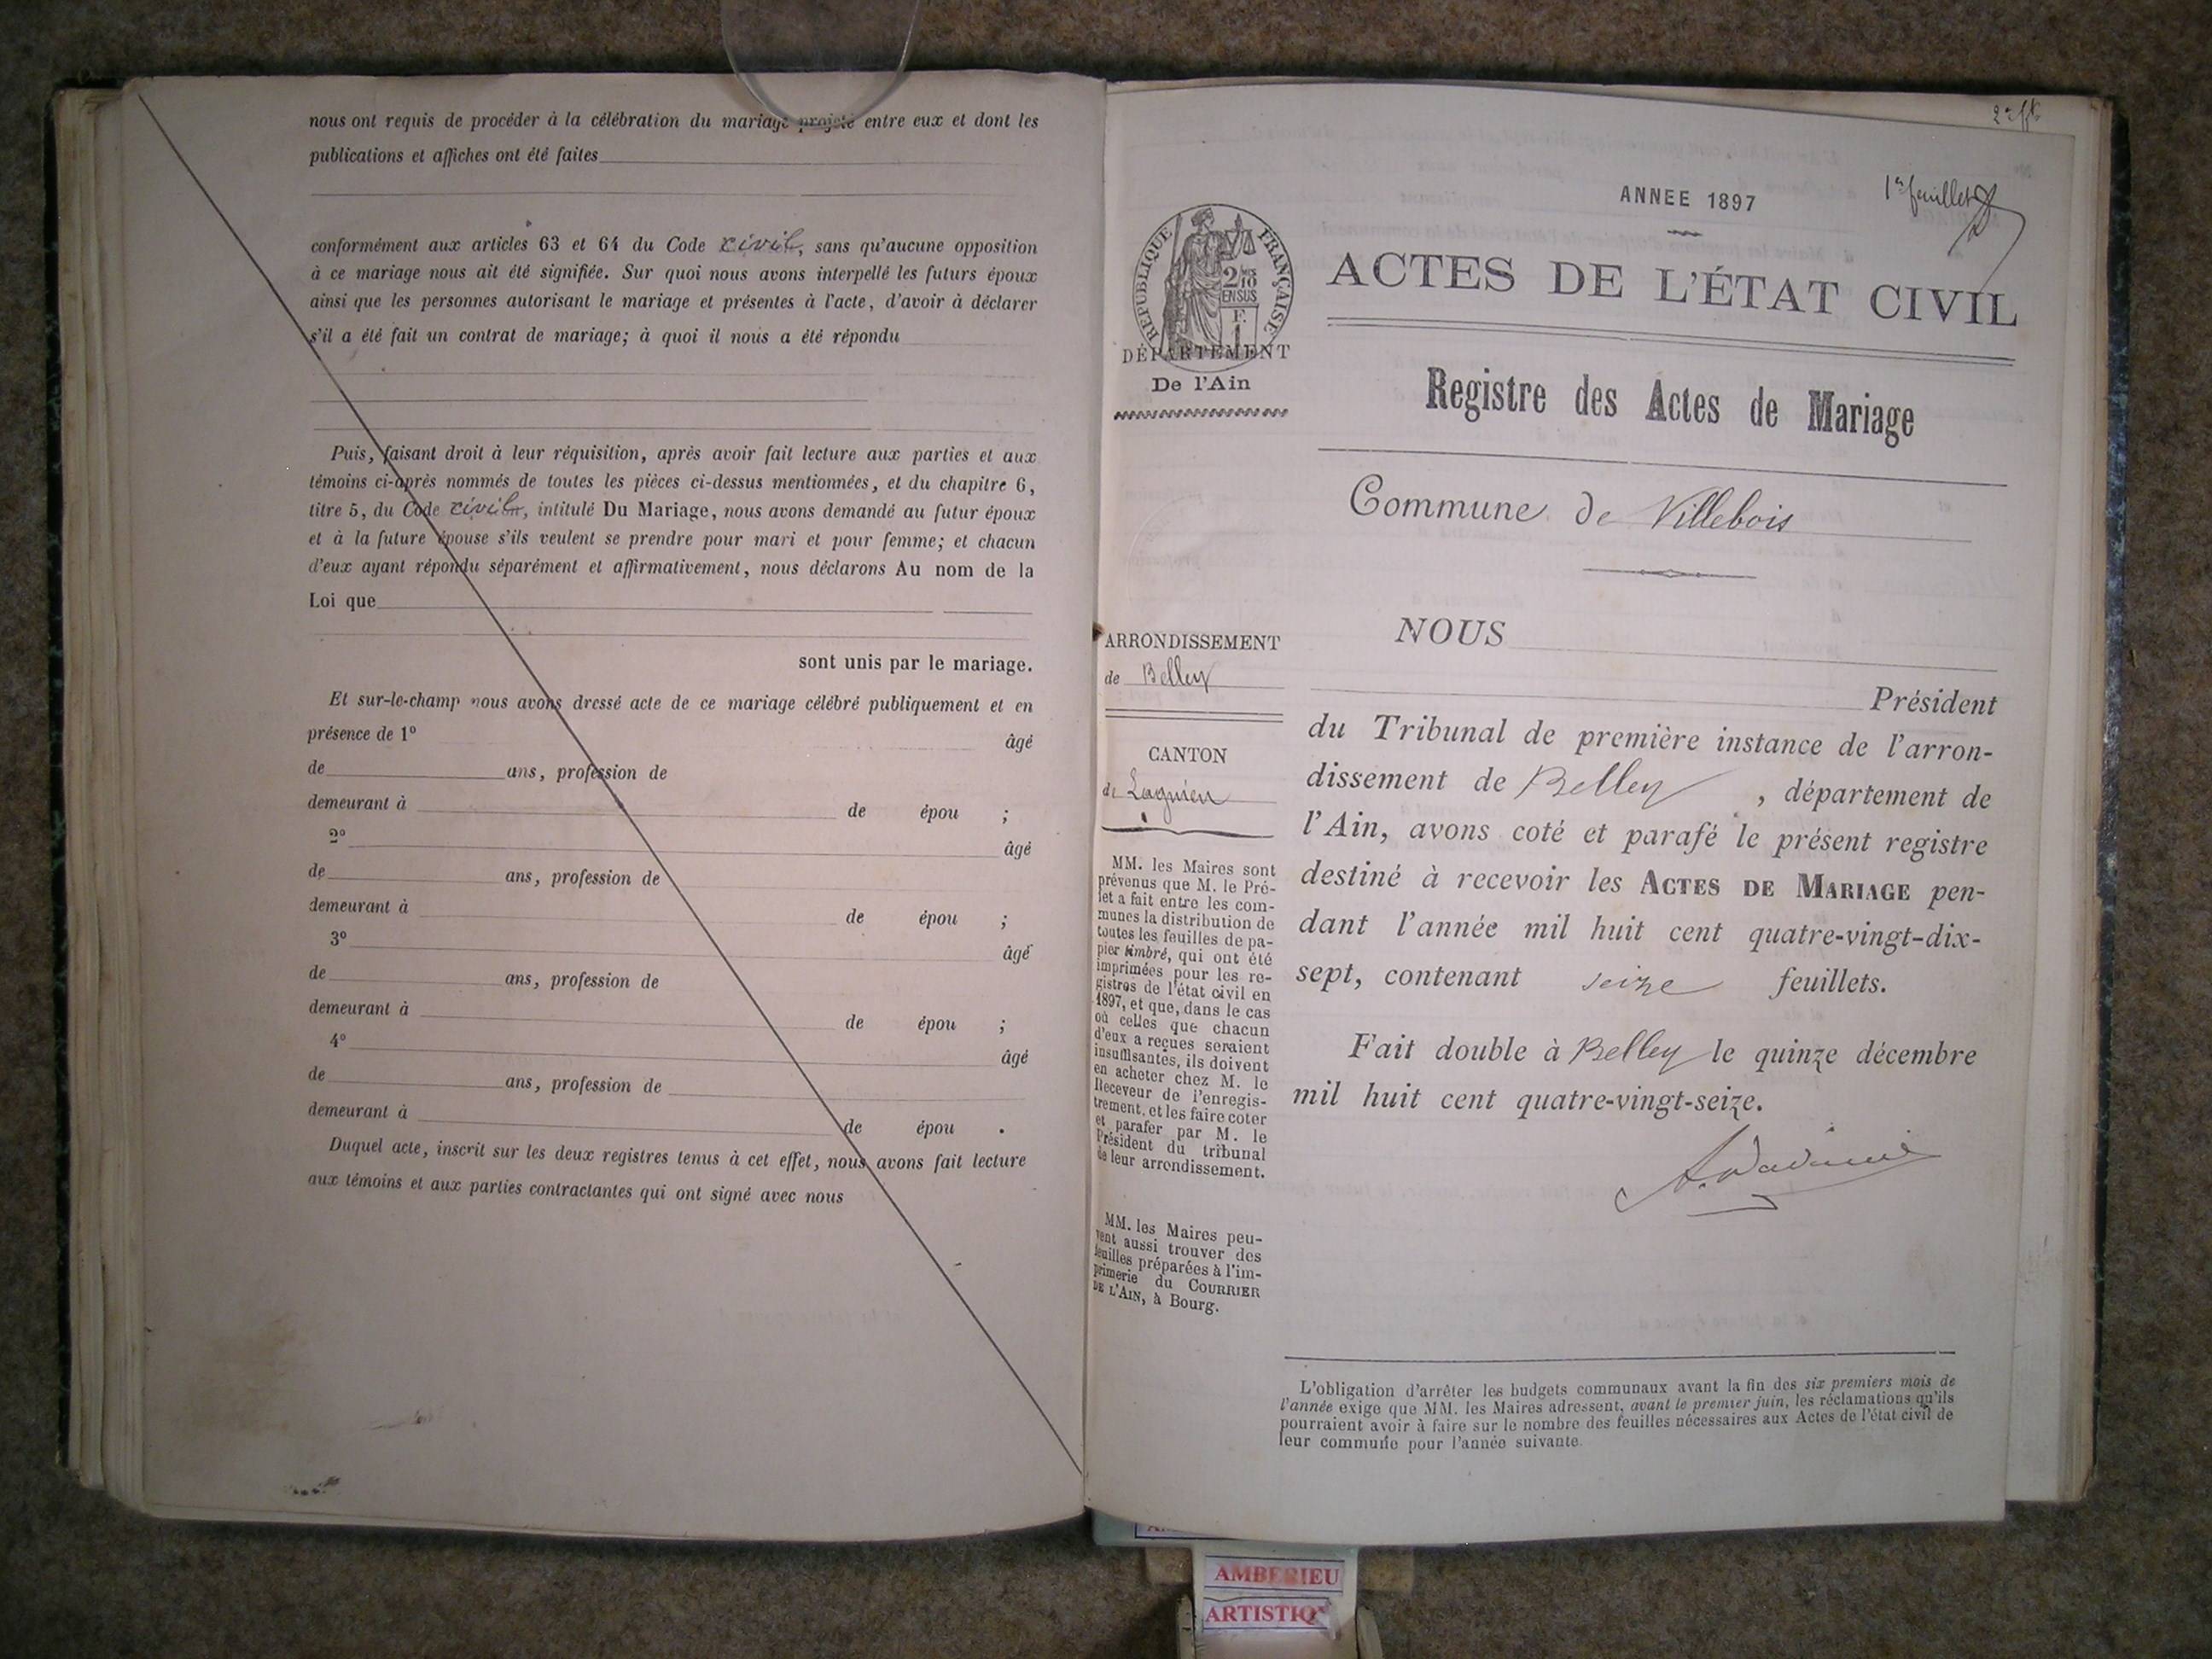 nous ont requis de procéder à la célébration du mariage projeté entre eux et dont les
publications et affiches ont été faites
conformément aux articles 63 et 64 du Code civil, sans qu'aucune opposition
à ce mariage nous ait été signifiée. Sur quoi nous avons interpellé les futurs époux
ainsi que les personnes autorisant le mariage et présentes à l'acte, d'avoir à déclarer
s'il a été fait un contrat de mariage; à quoi il nous a été répondu
Puis, faisant droit à leur réquisition, après avoir fait lecture aux parties et aux
témoins ci-après nommés de toutes les pièces ci-dessus mentionnées, et du chapitre 6,
titre 5, du Code civil, intitulé Du Mariage, nous avons demandé au futur époux
et à la future épouse s'ils veulent se prendre pour mari et pour femme; et chacun
d'eux ayant répondu séparément et affirmativement, nous déclarons Au nom de la
Loi que
sont unis par le mariage.
Et sur-le-champ nous avons dressé acte de ce mariage célébré publiquement et en
présence de 1° âgé
de ans, profession de
demeurant à de épou ;
2° âgé
de ans, profession de
demeurant à de épou ;
3° âgé
de ans, profession de
demeurant à de épou ;
4° âgé
de ans, profession de
demeurant à de épou .
Duquel acte, inscrit sur les deux registres tenus à cet effet, nous avons fait lecture
aux témoins et aux parties contractantes qui ont signé avec nous
1er feuillet
ANNEE 1897
REPUBLIQUE FRANÇAISE
2/10
EN SUS
F.
1
ACTES DE L'ÉTAT CIVIL
DÉPARTEMENT
De l'Ain
Registre des Actes de Mariage
Commune de Villebois
ARRONDISSEMENT
de Belley
CANTON
de Lagnieu
MM. les Maires sont
prévenus que M. le Pré-
fet a fait entre les com-
munes la distribution de
toutes les feuilles de pa-
pier timbré, qui ont été
imprimées pour les re-
gistres de l'état civil en
1897, et que, dans le cas
où celles que chacun
d'eux a reçues seraient
insuffisantes, ils doivent
en acheter chez M. le
Receveur de l'enregis-
trement, et les faire coter
et parafer par M. le
Président du tribunal
de leur arrondissement.
MM. les Maires peu-
vent aussi trouver des
feuilles préparées à l'im-
primerie du COURRIER
DE L'AIN, à Bourg.
NOUS
Président
du Tribunal de première instance de l'arron-
dissement de Belley , département de
l'Ain, avons coté et parafé le présent registre
destiné à recevoir les ACTES DE MARIAGE pen-
dant l'année mil huit cent quatre-vingt-dix-
sept, contenant seize feuillets.
Fait double à Belley le quinze décembre
mil huit cent quatre-vingt-seize.
L'obligation d'arrêter les budgets communaux avant la fin des six premiers mois de
l'année exige que MM. les Maires adressent, avant le premier juin, les réclamations qu'ils
pourraient avoir à faire sur le nombre des feuilles nécessaires aux Actes de l'état civil de
leur commune pour l'année suivante.
AMBERIEU
ARTISTIQ